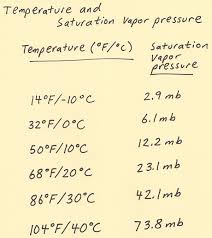 Temperature and
Saturation Vapor pressure
Temperature (°F/°C) Saturation
Vapor
pressure
14°F/-10°C 2.9 mb
32°F/0°C 6.1 mb
50°F/10°C 12.2 mb
68°F/20°C 23.1 mb
86°F/30°C 42.1 mb
104°F/40°C 73.8 mb